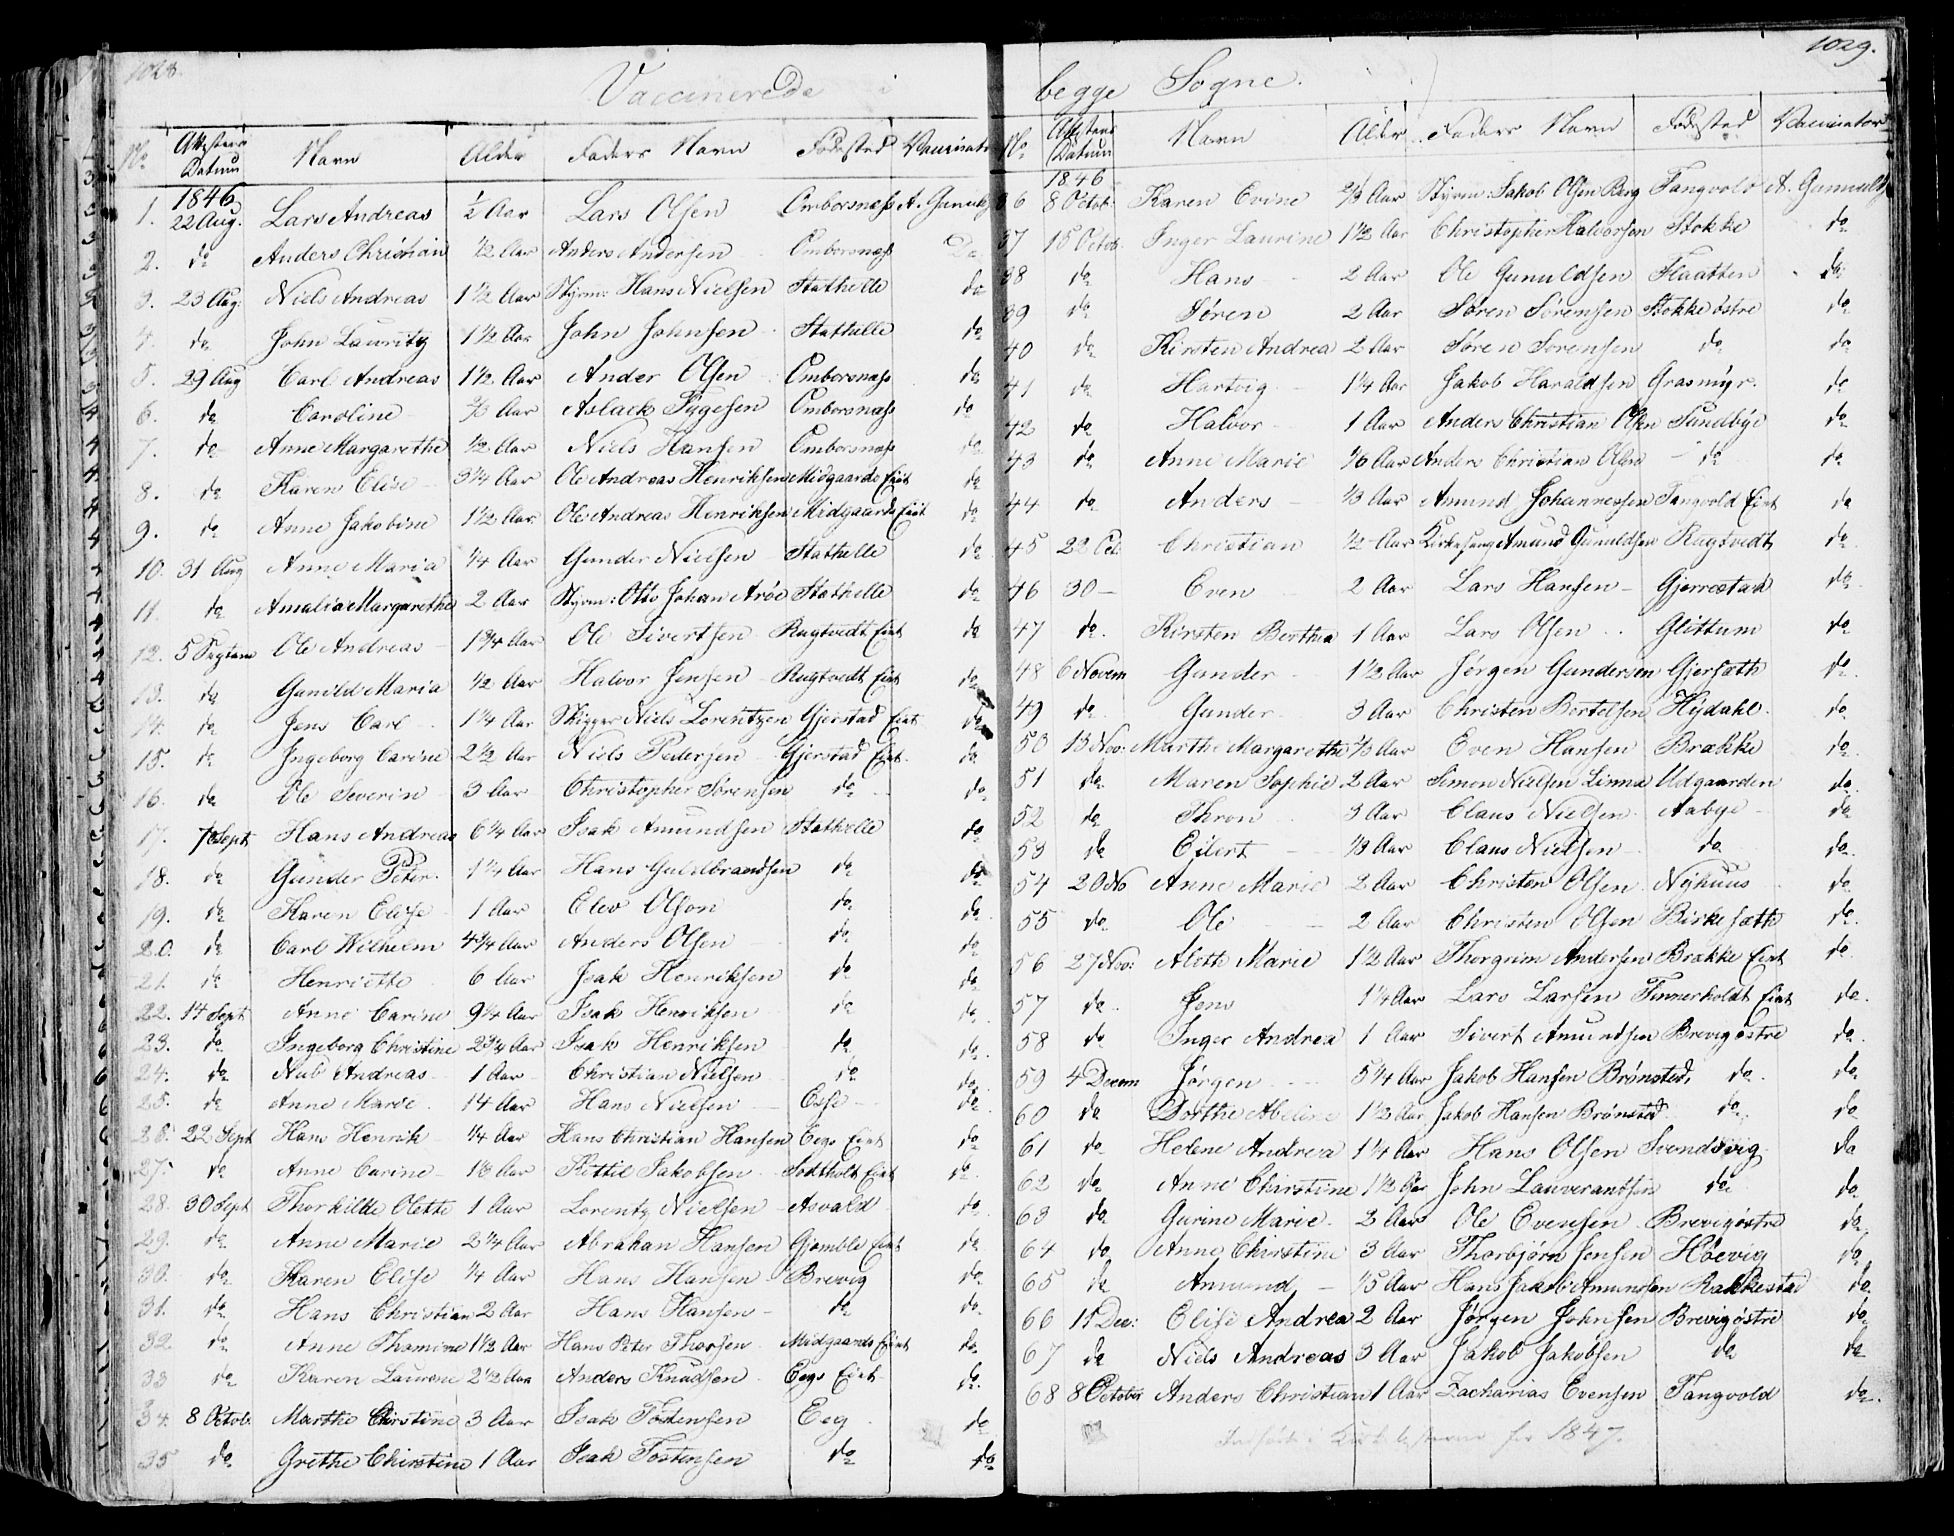 1028.
Vaccinerede i
No Attestens Datum Navn Alder Faders Navn Fødested Vaccinator
1846
1. 22 Aug. Lars Andreas ½ Aar Lars Olsen Omborsnæss A. Gunuldsen
2. do Anders Christian ½ Aar Anders Andersen Omborsnæss Do
3. 23 Aug: Niels Andreas 1½ Aar Styrm: Hans Nielsen Stathelle do
4. do John Lauritz 1½ Aar John Johnsen Stathelle do
5. 29 Aug Carl Andreas 1½ Aar Ander Olsen Omborsnæss do
6. do Caroline ⅔ Aar Aslack Tygesen Omborsnæss do
7. do Anne Margarethe ½ Aar Niels Hansen Omborsnæss do
8. do Karen Elise 3¼ Aar Ole Andreas Henriksen Midgaards Eiet do
9. do Anne Jakobine 1½ Aar Ole Andreas Henriksen Midgaards Eiet do
10. 31 Aug Anne Maria ¼ Aar Gunder Nielsen Stathelle do
11. do Amalia Margarethe 2 Aar Styrm: Otto Johan Arøe Stathelle do
12. 5 Septem Ole Andreas 1¾ Aar Ole Sivertsen Rugtvedt Eiet do
13. do Gunild Maria ½ Aar Halvor Jensen Rugtvedt Eiet do
14. do Jens Carl 1¼ Aar Skipper Niels Lorentzen Gjerstad Eiet do
15. do Ingeborg Carine 2½ Aar Niels Pedersen Gjerstad Eiet do
16. do Ole Severin 3 Aar Christopher Sørensen do do
17. 7 Sept Hans Andreas 6¼ Aar Isak Amundsen Stathelle do
18. do Gunder Peter. 1¼ Aar Hans Guldbrandsen do do
19. do Karen Elise 1 Aar Elev Olson do do
20. do Carl Wilhelm 4¾ Aar Anders Olsen do do
21. do Henriette 6 Aar Isak Henriksen do do
22. 14 Sept Anne Carine 9¼ Aar Isak Henriksen do do
23. do Ingeborg Christine 2¾ Aar Isak Henriksen do do
24. do Niels Andreas 1 Aar Christian Nielsen do do
25. do Anne Marie 14 Aar Hans Nielsen do
26. 22 Sept Hans Henrik ¼ Aar Hans Christian Hansen Eegs Eiet do
27. do Anne Carine Aar Kittil Jakobsen Eiet do
28. 30 Sept Thorkilde Olette 1 Aar Lorentz Nielsen Asvald do
29. do Anne Marie 2¼ Aar Abrahan Hansen Gjemble Eiet do
30. do Karen Elise ¼ Aar Hans Hansen Brevig do
31. do Hans Christian 2 Aar Hans Hansen do do
32 do Anne Thamine 1½ Aar Hans Peter Thorsen Midgaards Eiet do
33 do Karen Laurene 2½ Aar Anders Knudsen Eegs Eiet do
34. 8 Octob. Marthe Chirstine 3 Aar Isak Tostensen Eeg do
35 do Grethe Chirstine 1 Aar Isak Tostensen do do
1029.
begge Sogne.
No Attestens Datum Navn Alder Faders Navn Fødested Vaccinator
1846
36 8 Octob. Karen Evine ⅔ Aar Styrm: Jakob Olsen Berg Tangvold A. Gunnulds
37 15 Octob. Inger Laurine 1½ Aar Christopher Halvorsen Stokke do
38 do Hans 2 Aar Ole Gunuldsen Flaatten do
39 do Søren 2 Aar Søren Sørensen Stokke østre do
40 do Kirsten Andrea 2 Aar Søren Sørensen do do
41 do Hartvig 1¼ Aar Jakob Haraldsen Grasmyr. do
42 do Halvor 1 Aar Anders Christian Olsen Sundbye do
43 do Anne Marie ⅙ Aar Anders Christian Olsen do do
44 do Anders ⅓ Aar Amund Johannessen Tangvold Eiet do
45 22 Oct Christian ½ Aar Kirkesang Amund Gunuldsen Rugtvedt do
46 30 — Even 2 Aar Lars Hansen Gjerrestad do
47 do Kirsten Berthea 1 Aar Lars Olsen Glittum do
48 6 Novem Gunder 1½ Aar Jørgen Gundersen Gjersæth do
49 do Gunder 3 Aar Christen Bertelsen Hydahl. do
50 13 Nov: Marthe Margarethe ⅓ Aar Even Hansen Brække do
51 do Maren Sophie 2 Aar Simon Nielsen Linna Udgaarden do
52 do Thron 3 Aar Claus Nielsen Aabye do
53 do Eilert ⅓ Aar Claus Nielsen do do
54 20 No Anne Marie 2 Aar Christen Olsen Nyhuus do
55 do Ole 2 Aar Christen Olsen Birkesæth do
56 27 Nov: Aleth Marie 1½ Aar Thorgrim Andersen Brække Eiet do
57 do Jens 1¼ Aar Lars Larsen Tinnerholdt Eiet do
58 do Inger Andrea 1 Aar Sivert Amundsen Brevig østre do
59 4 Decem Jørgen 5¼ Aar Jakob Hansen Brønsted, do do
60 do Dorthe Abeline 1½ Aar Jakob Hansen Brønsted do do
61 do Helene Andrea 1¼ Aar Hans Olsen Svendsvig do
62 do Anne Chirstine 1½ Aar John Lauverantsen do do
63 do Gurine Marie 3 Aar Ole Evensen Brevig østre do
64 do Anne Chirstine 3 Aar Thorbjørn Jensen Høevig do
65 do Amund ⅕ Aar Hans Jakob Amundsen Rakkestad do
66 11 Dec: Elise Andrea 2 Aar Jørgen Johnsen Brevig østre do
67 do Niels Andreas 3 Aar Jakob Jakobsen do do
68 8 October Anders Christian 1 Aar Zacharias Evensen Tangvold do
Indført i Kirkelisterne for 1847.